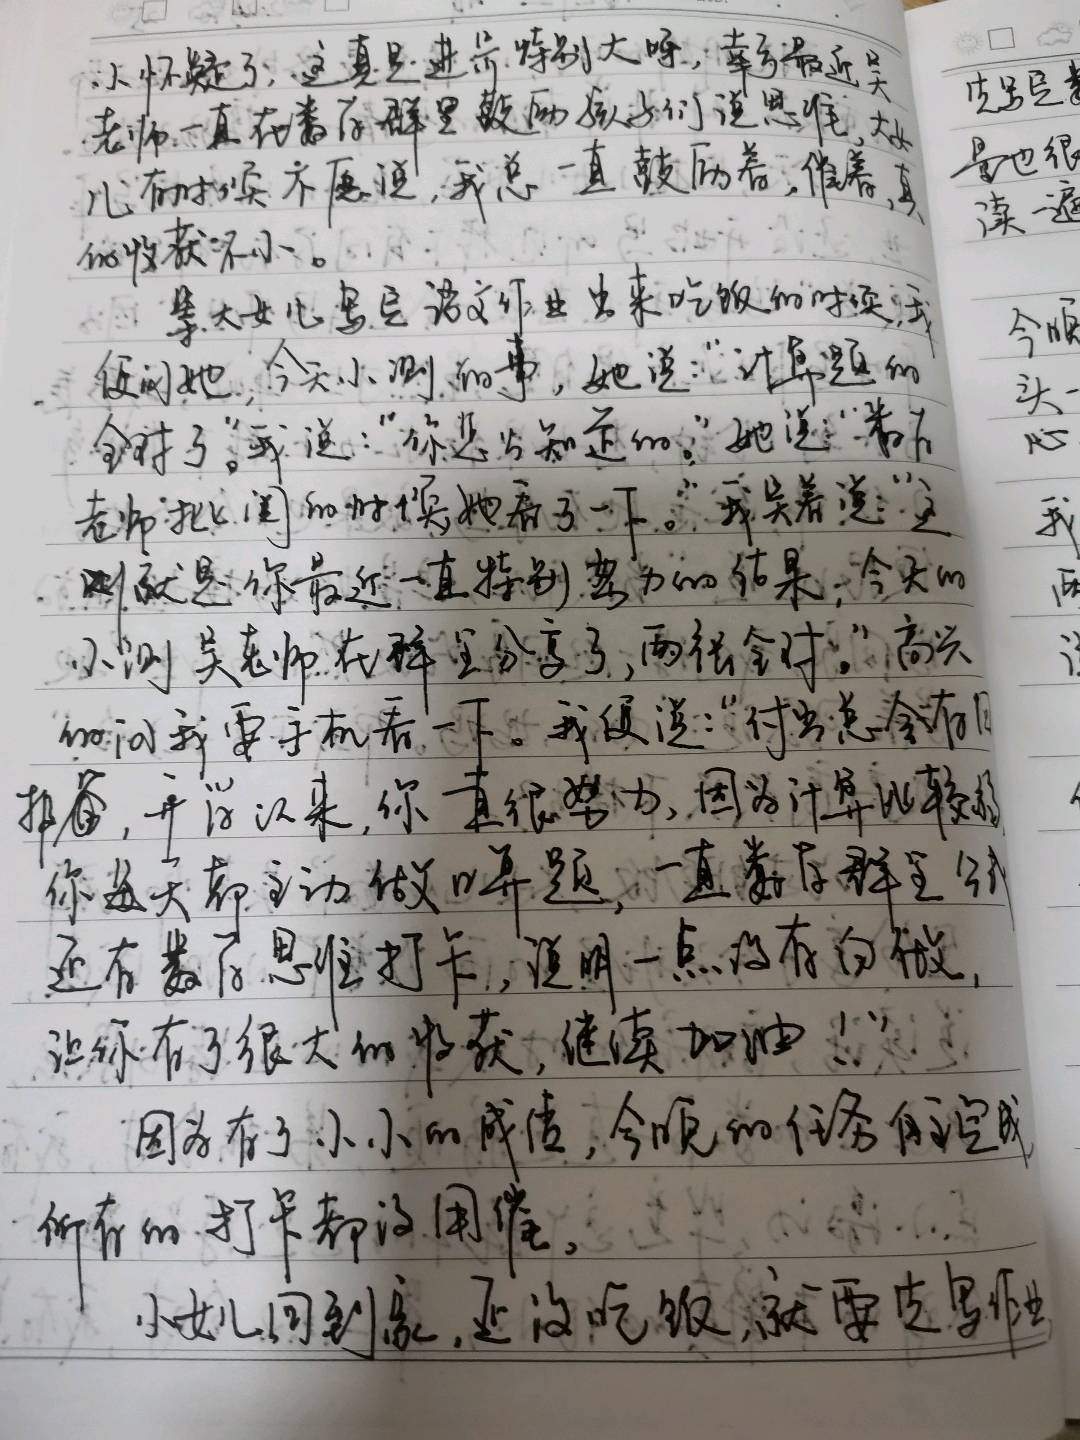 小怀疑了，这真是进步特别大呀，幸亏最近吴
老师一直在数学群里鼓励孩子们说思维，大女
儿有时候不愿说，我总一直鼓励着，催着，真
的收获不小。
等大女儿写完语文作业出来吃饭的时候，我
便问她，今天小测的事，她说：“计算题的
全对了。”我说：“你怎么知道的。”她说：“数学
老师批阅的时候她看了一下。”我笑着说：“这
就是你最近一直特别努力的结果，今天的
小测吴老师在群里分享了，两张全对。”高兴
的问我要手机看一下。我便说：“付出总会有回
报，开学以来，你一直很努力，因为计算比较弱
你每天都主动做口算题，一直数学群里
还有数学思维打卡，说明一点没有白做，
让你有了很大的收获，继续加油！”
因为有了小小的成绩，今晚的任务自主完成
所有的打卡都没用催。
小女儿回到家，还没吃饭，就要先写作业
先写完数
量也很
读一遍
今晚
头一
心
我
两